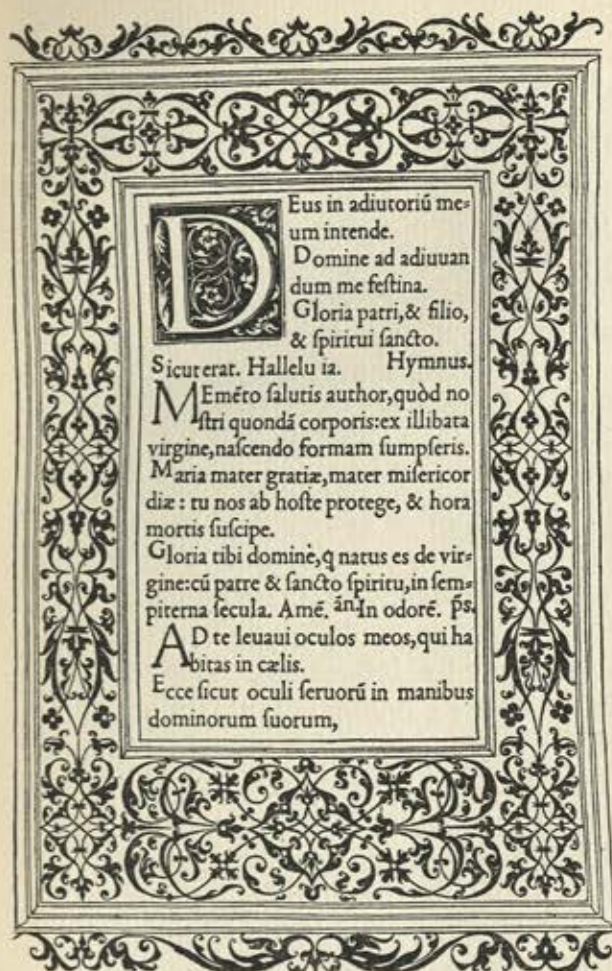 DEus in adiutoriū me=
um intende.
Domine ad adiuuan
dum me feſtina.
Gloria patri,& filio,
& ſpiritui ſancto.
Sicut erat. Hallelu ia. Hymnus.
MEmēto ſalutis author,quòd no
ſtri quondā corporis:ex illibata
virgine,naſcendo formam ſumpſeris.
Maria mater gratiæ,mater miſericor
diæ : tu nos ab hoſte protege, & hora
mortis ſuſcipe.
Gloria tibi dominè,q̄ natus es de vir=
gine:cū patre & ſancto ſpiritu,in ſem=
piterna ſecula. Amē. añ. In odorē. p̄s.
AD te leuaui oculos meos,qui ha
bitas in cælis.
Ecce ſicut oculi ſeruorū in manibus
dominorum ſuorum,